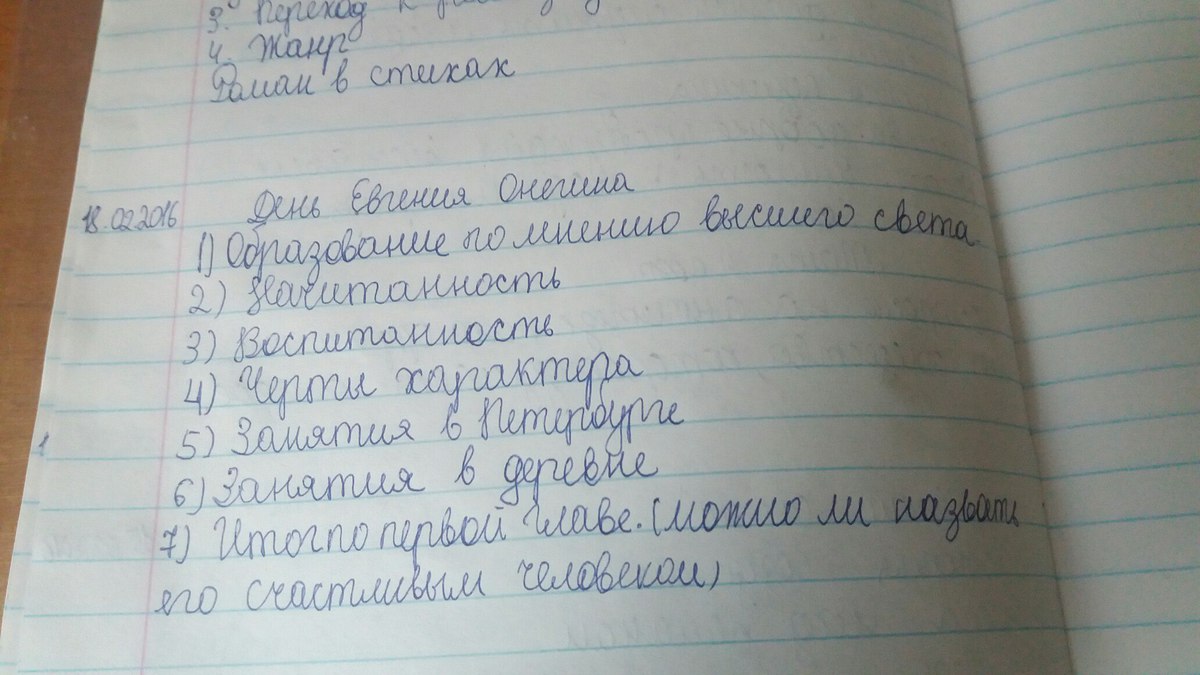 3. Переход к
4. Жанр
Роман в стихах
18.02.2016 День Евгения Онегина
1) Образование по мнению высшего света.
2) Начитанность
3) Воспитанность
4) Черты характера
5) Занятия в Петербурге
6) Занятия в деревне
7) Итог по первой главе. (можно ли назвать
его счастливым человеком)